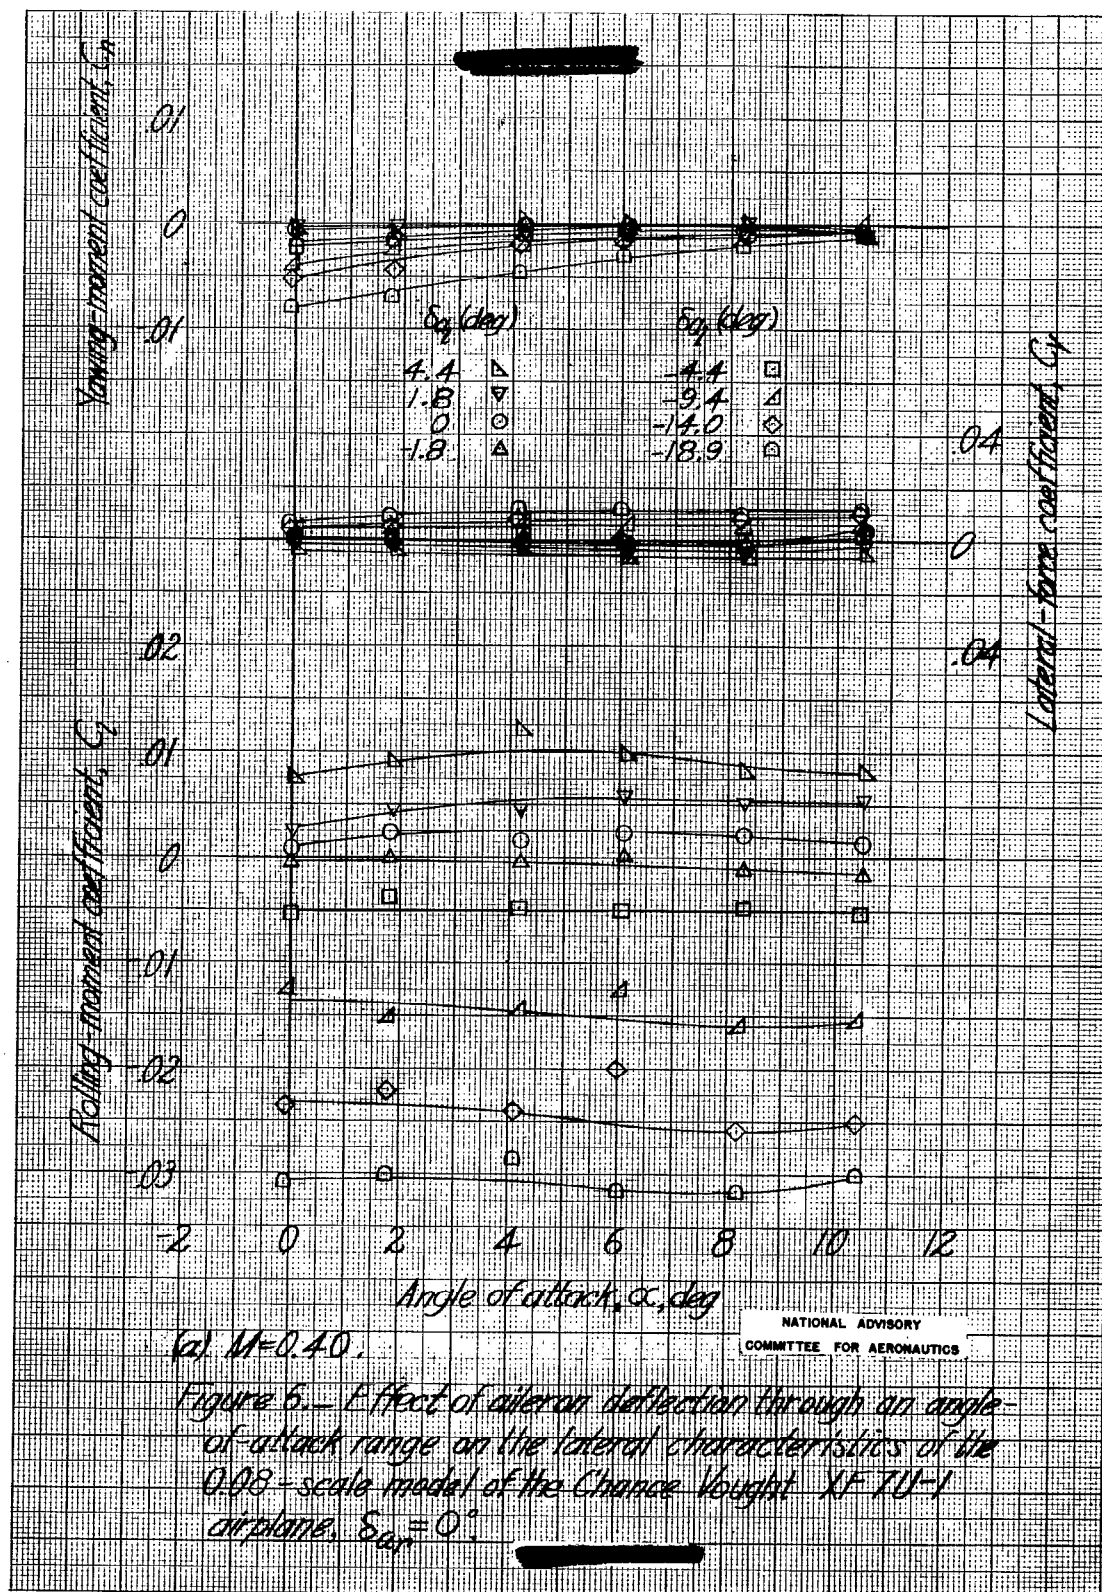 Yawing-moment coefficient, Cn
.01
0
-.01
δaℓ (deg) δaℓ (deg)
4.4 -4.4
1.8 -9.4
0 -14.0
-1.8 -18.9
.04
0
.04
Lateral-force coefficient, CY
.02
.01
0
-.01
-.02
-.03
Rolling-moment coefficient, Cl
-2 0 2 4 6 8 10 12
Angle of attack, α, deg
NATIONAL ADVISORY
COMMITTEE FOR AERONAUTICS
(a) M=0.40.
Figure 6.— Effect of aileron deflection through an angle-
of-attack range on the lateral characteristics of the
0.08-scale model of the Chance Vought XF7U-1
airplane. δar = 0°.